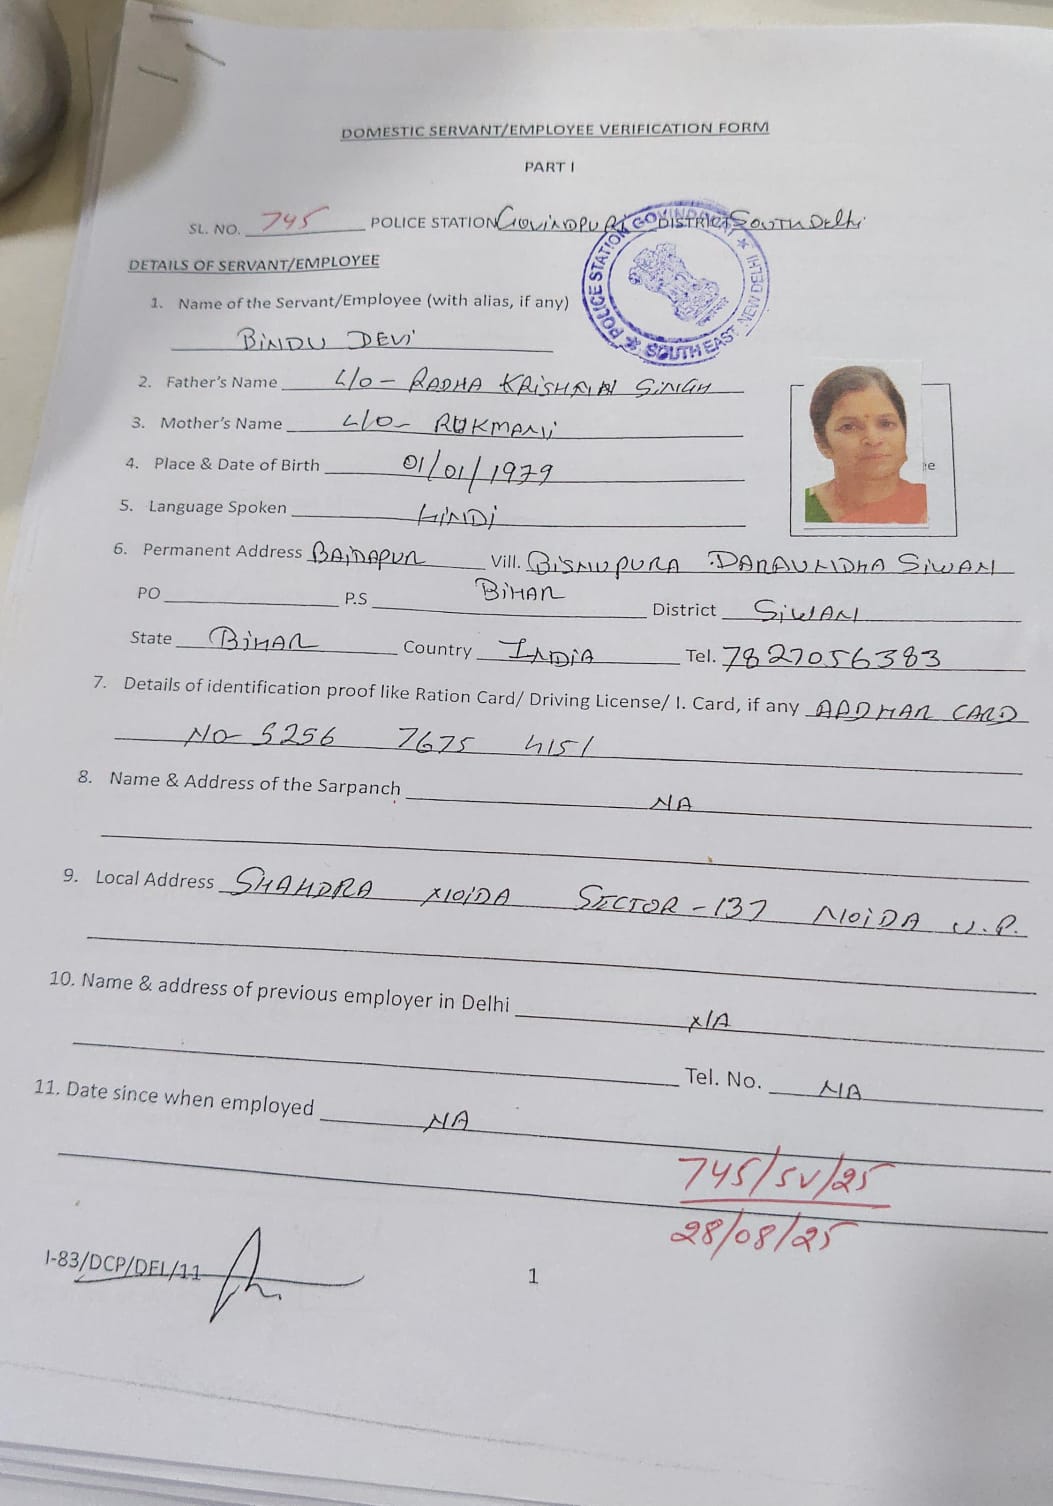 DOMESTIC SERVANT/EMPLOYEE VERIFICATION FORM
PART I
SL. NO. 745 POLICE STATION GOVINDPURI DISTRICT SOUTH Delhi
POLICE STATION GOVINDPURI ★ SOUTH EAST NEW DELHI ★
DETAILS OF SERVANT/EMPLOYEE
1. Name of the Servant/Employee (with alias, if any)
BINDU DEVI
2. Father's Name L/O- RADHA KRISHNA SINGH
3. Mother's Name L/O- RUKMANI
4. Place & Date of Birth 01/01/1979
5. Language Spoken HINDI
6. Permanent Address BAIDAPUR Vill. BISNUPURA DARAUNDHA SIWAN
BIHAR
PO P.S District SIWAN
State BIHAR Country INDIA Tel. 7827056383
7. Details of identification proof like Ration Card/ Driving License/ I. Card, if any AADHAR CARD
No- 5256 7675 4151
8. Name & Address of the Sarpanch NA
9. Local Address SHAHDRA NOIDA SECTOR-137 NOIDA U.P.
10. Name & address of previous employer in Delhi N/A
Tel. No. NA
11. Date since when employed NA
745/SV/25
28/08/25
I-83/DCP/DEL/11
1